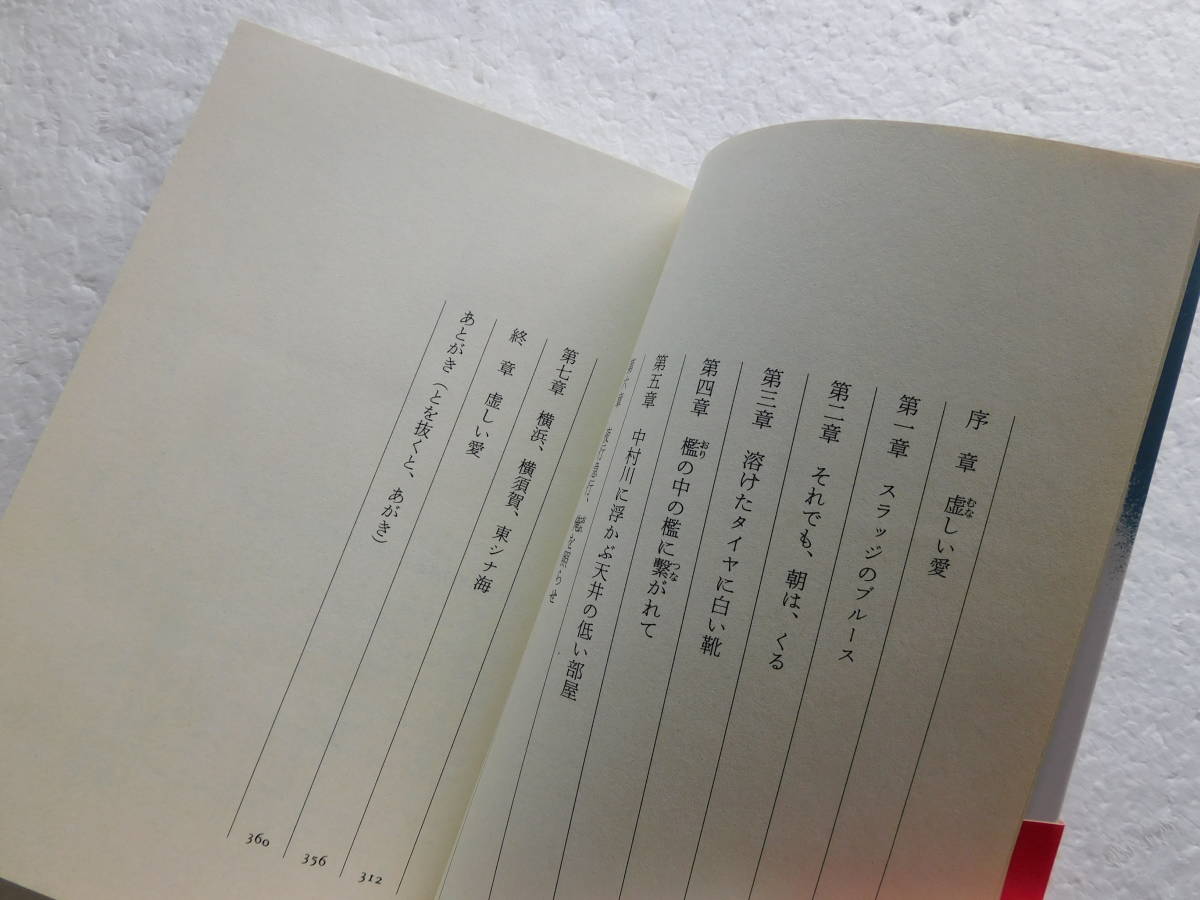 序　章　虚しい愛
むな
第一章　スラッジのブルース
第二章　それでも、朝は、くる
第三章　溶けたタイヤに白い靴
第四章　檻の中の檻に繫がれて
おり
つな
第五章　中村川に浮かぶ天井の低い部屋
第六章
第七章　横浜、横須賀、東シナ海
312
終　章　虚しい愛
356
あとがき（とを抜くと、あがき）
360